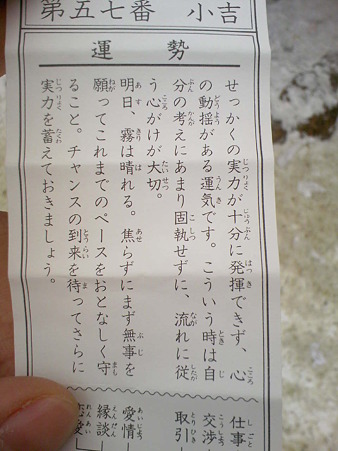 第五七番　小吉
運勢
せっかくの実力が十分に発揮できず、心
の動揺がある運気です。こういう時は自
分の考えにあまり固執せずに、流れに従
う心がけが大切。
明日、霧は晴れる。焦らずにまず無事を
願ってこれまでのペースをおとなしく守
ること。チャンスの到来を待ってさらに
実力を蓄えておきましょう。
仕事
交渉
取引
愛情
縁談
恋愛